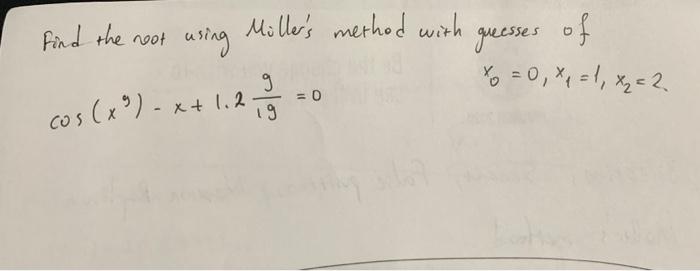 Find the root using Müller's method with guesses of
x₀ = 0, x₁ = 1, x₂ = 2.
cos(x⁹) - x + 1.2 9/19 = 0